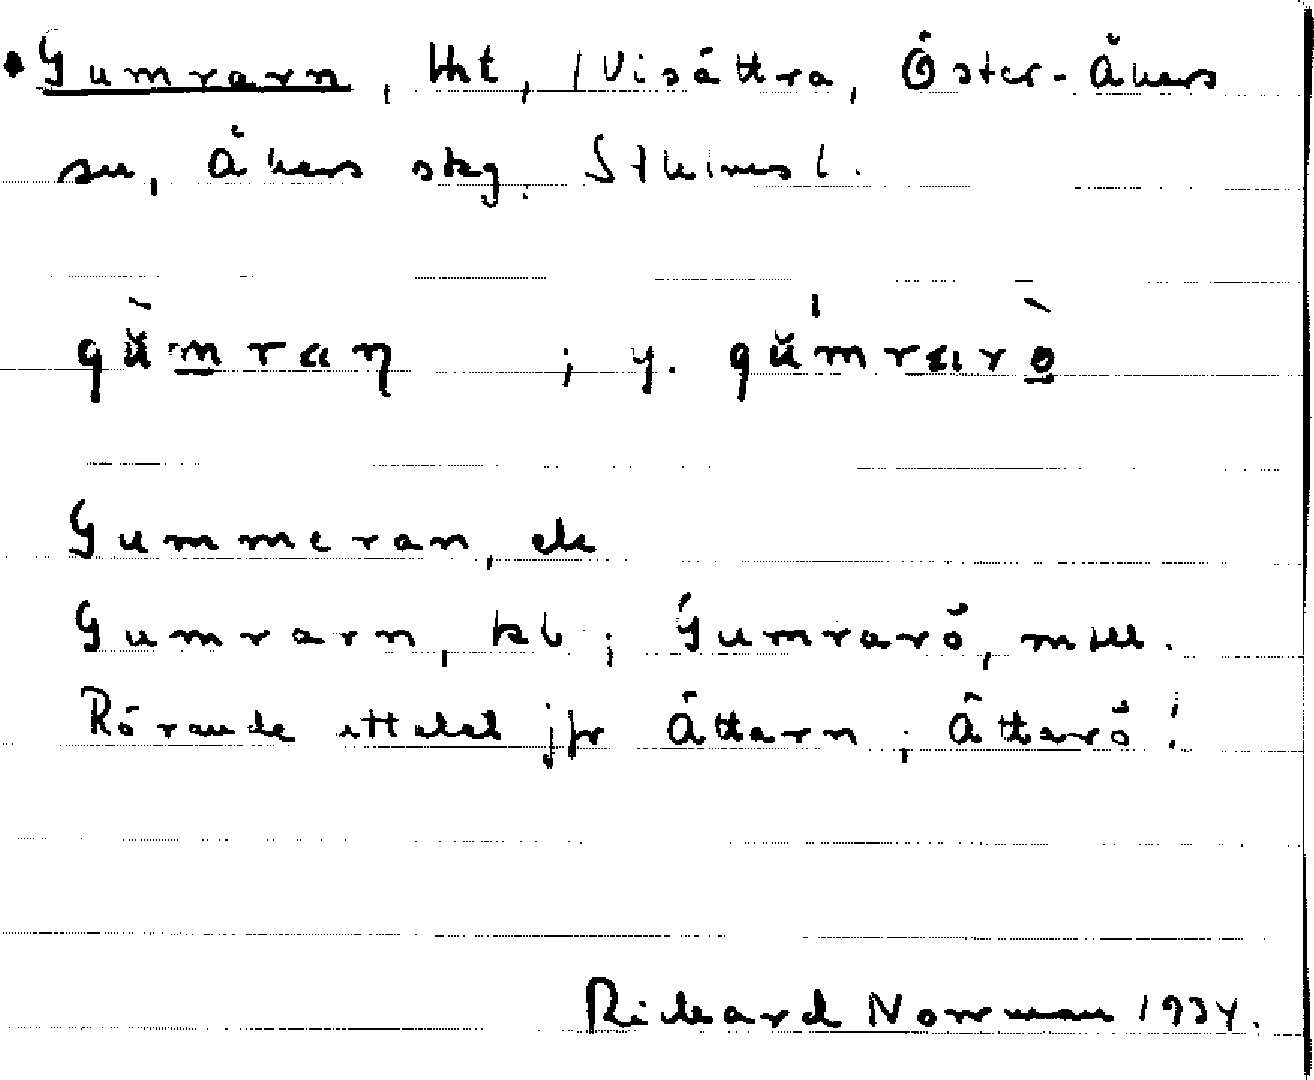 Gumrarn, tht, / Visättra, Öster-Åkers
sn, Åkers skg. Sthlms l.
gùmran ; y. gúmrarò
Gummeran, ek
Gumrarn, kb ; Gumrarö, mtll.
Rörande uttalet jfr Åttarn ; Åttarö !
Rickard Norrman 1934.